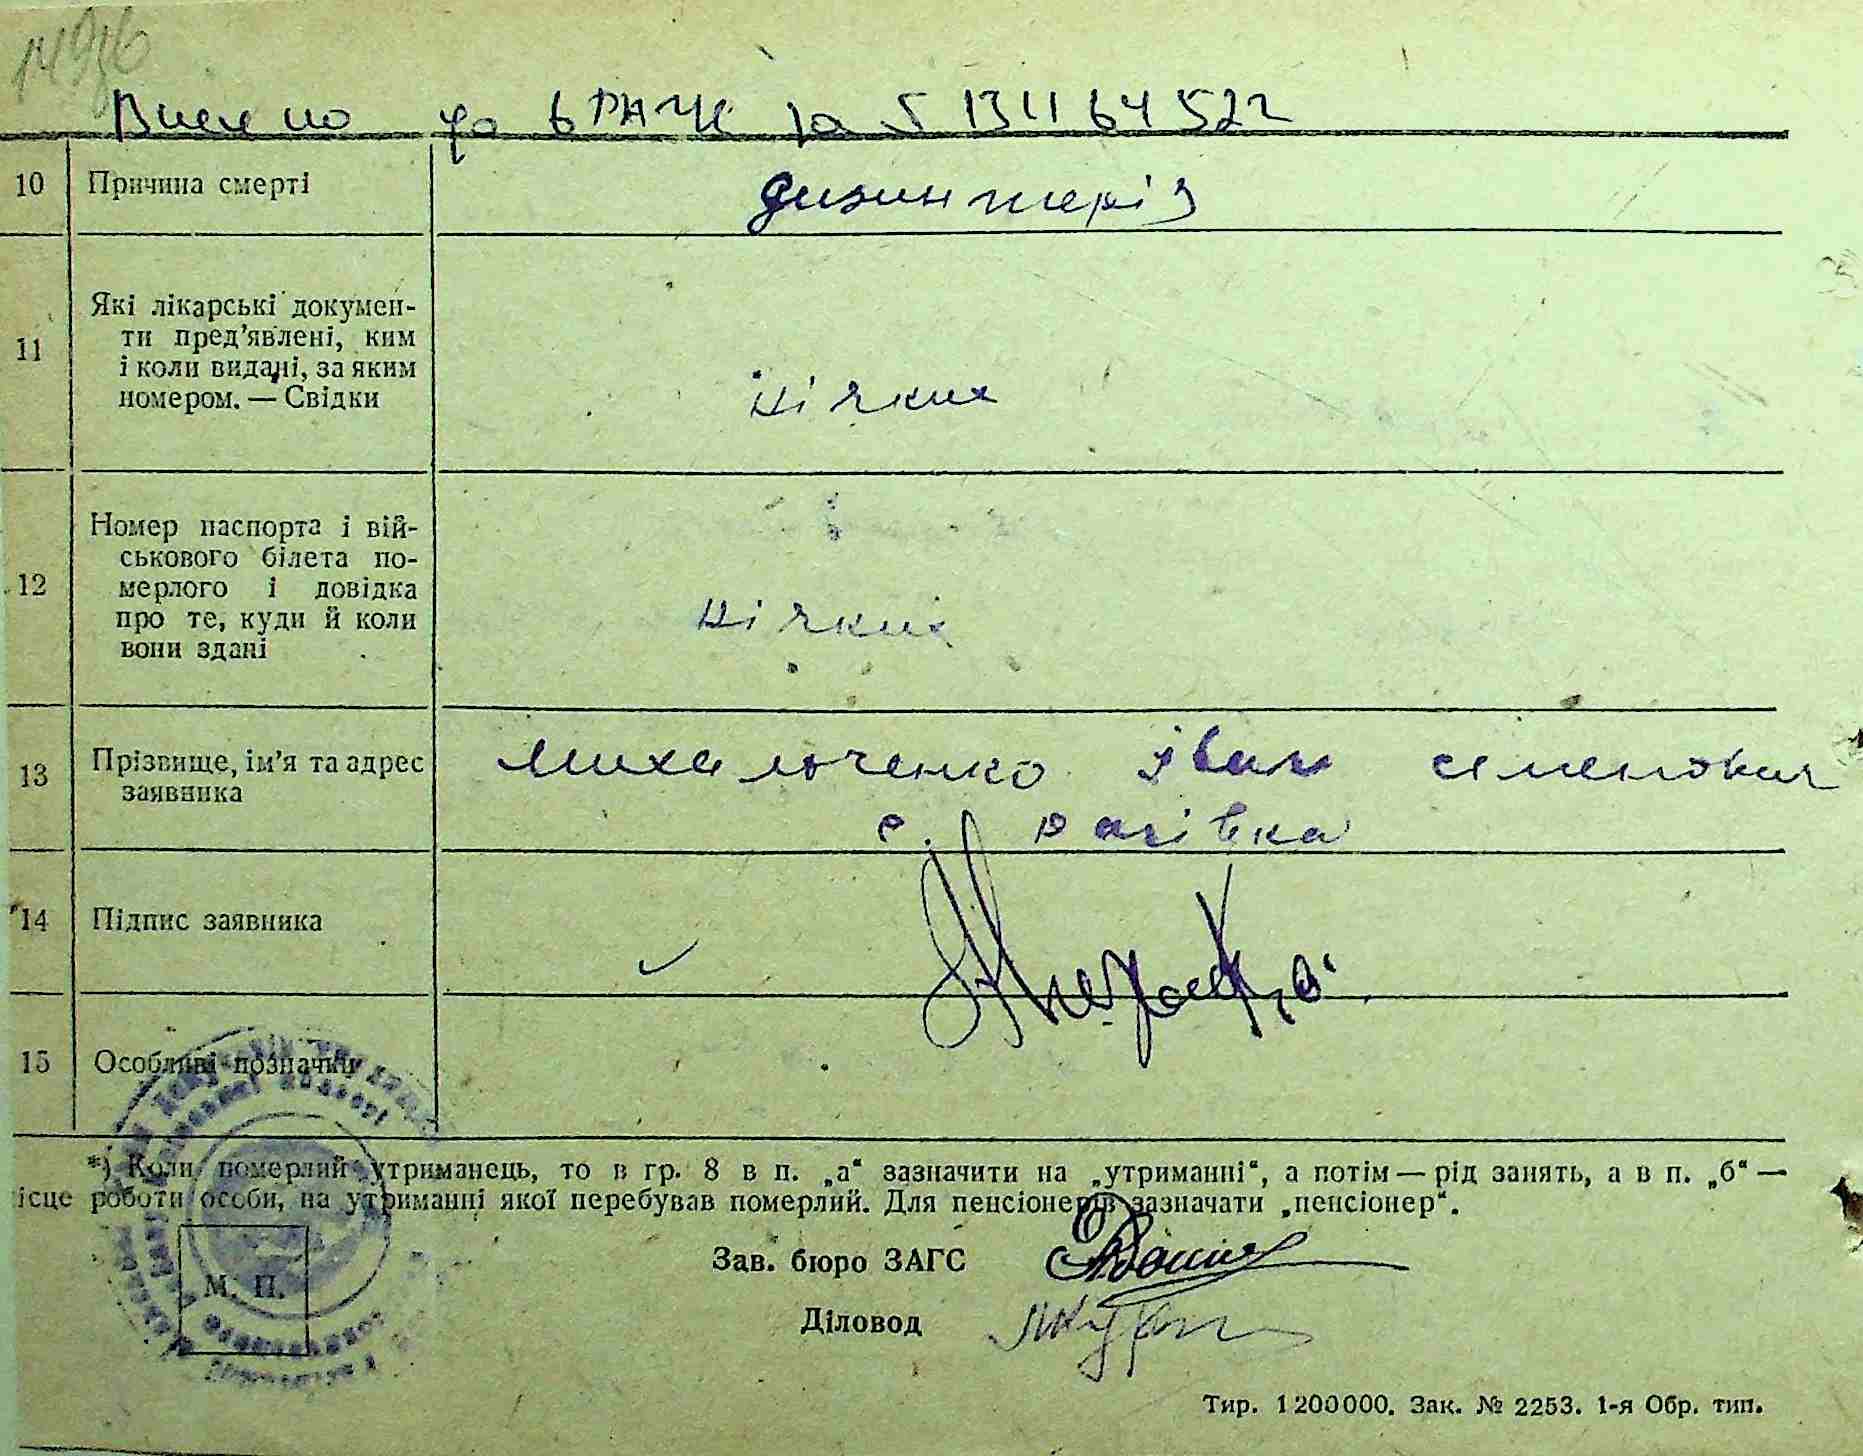 1496
Внесено до ДРАЦС за № 13464522
10 Причина смерті дизинтерія
11 Які лікарські докумен-
ти пред'явлені, ким
і коли видані, за яким
номером. — Свідки ніяких
12 Номер паспорта і вій-
ськового білета по-
мерлого і довідка
про те, куди й коли
вони здані ніяких
13 Прізвище, ім'я та адрес
заявника Михальченко Іван Семенович
с.
14 Підпис заявника
15 Особливі позначки
*) Коли померлий утриманець, то в гр. 8 в п. „а“ зазначити на „утриманні“, а потім — рід занять, а в п. „б“ —
ісце роботи особи, на утриманні якої перебував померлий. Для пенсіонерів зазначати „пенсіонер“.
М. П.
Зав. бюро ЗАГС
Діловод
Тир. 1200000. Зак. № 2253. 1-я Обр. тип.